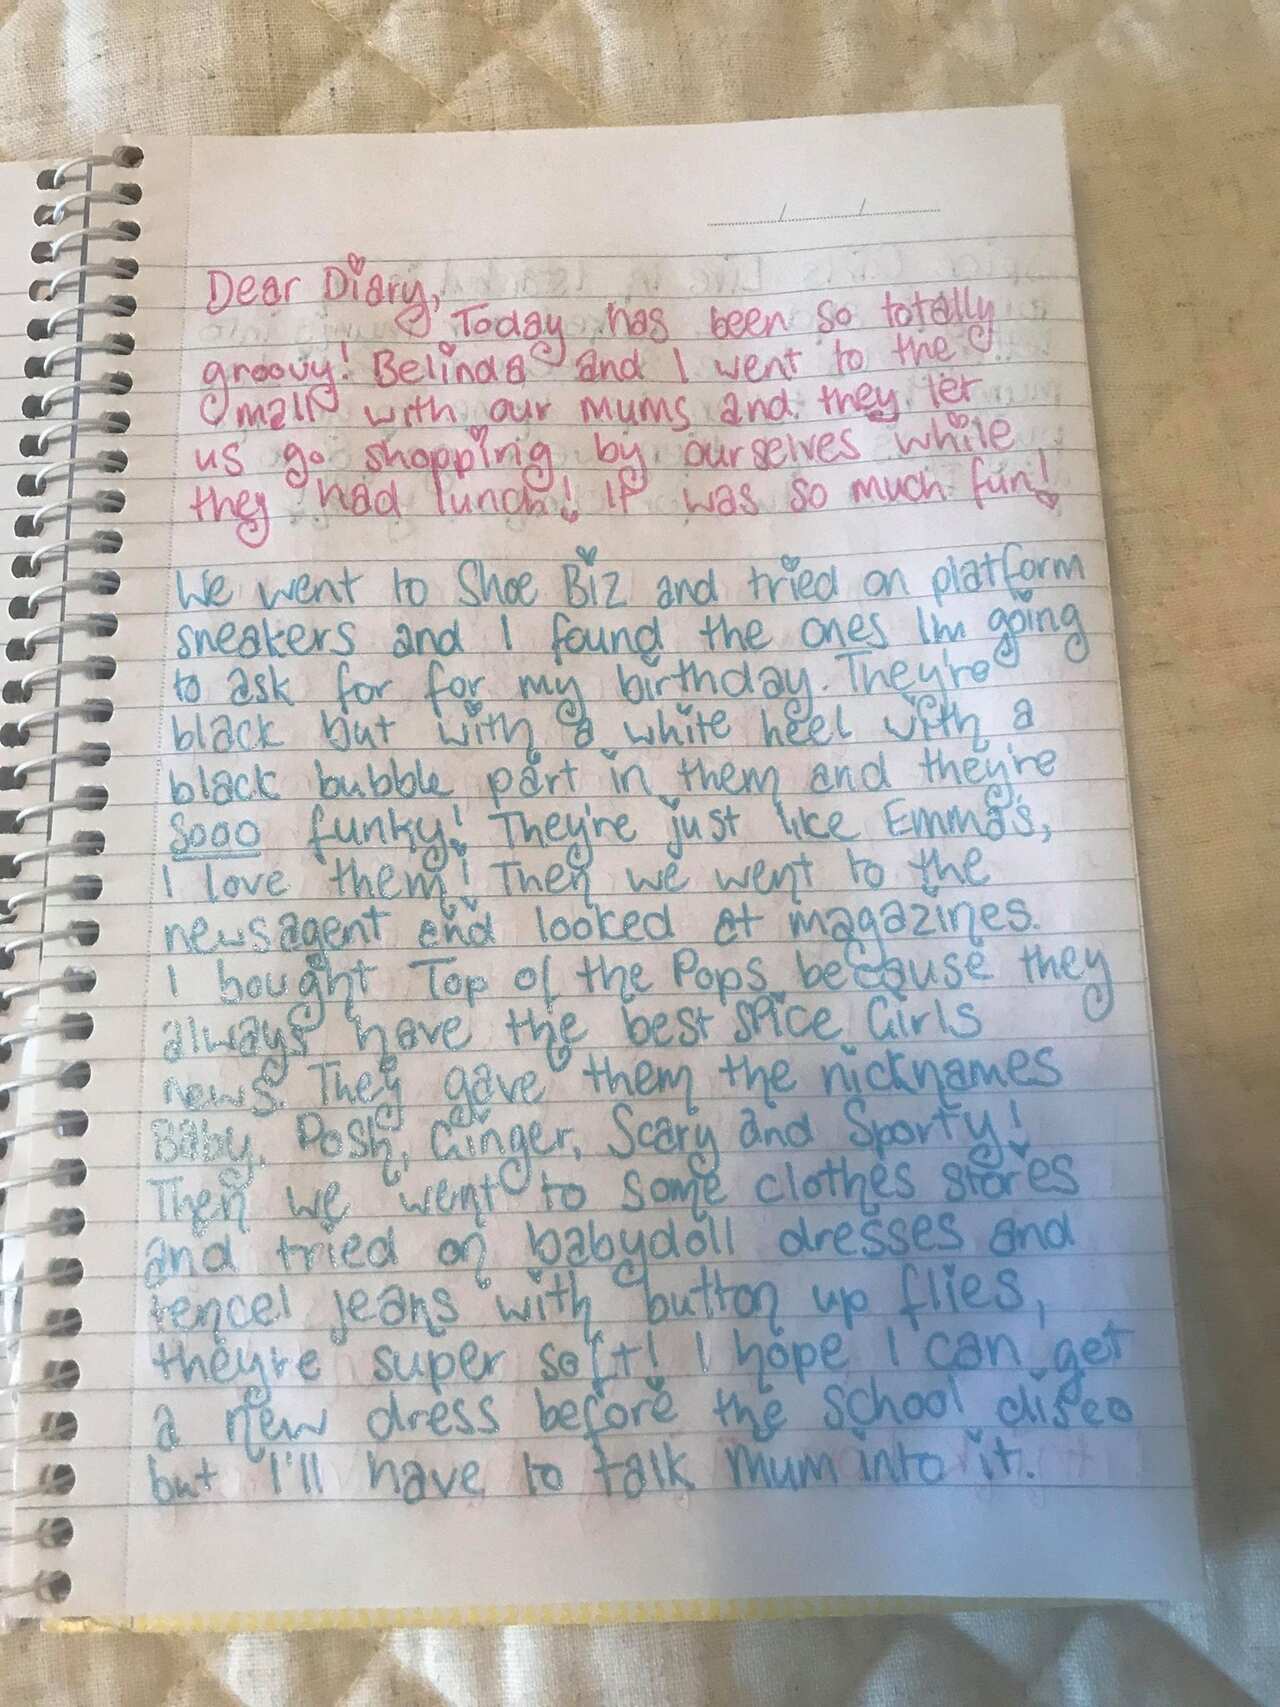 Dear Diary,
Today has been so totally
groovy! Belinda and I went to the
mall with our mums and they let
us go shopping by ourselves while
they had lunch! It was so much fun!
We went to Shoe Biz and tried on platform
sneakers and I found the ones Im going
to ask for for my birthday. They're
black but with a white heel with a
black bubble part in them and they're
sooo funky! They're just like Emma's,
I love them! Then we went to the
newsagent and looked at magazines.
I bought Top of the Pops because they
always have the best Spice Girls
news. They gave them the nicknames
Baby, Posh, Ginger, Scary and Sporty!
Then we went to some clothes stores
and tried on babydoll dresses and
tencel jeans with button up flies,
they're super soft! I hope I can get
a new dress before the school disco
but I'll have to talk Mum into it.